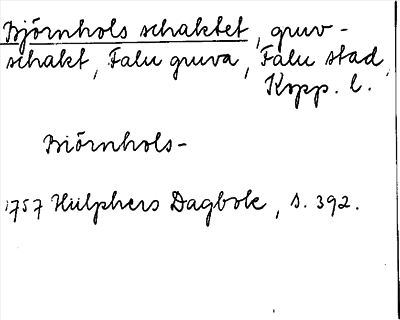 Björnhols schaktet, gruv-
schakt, Falu gruva, Falu stad,
Kopp. l.
Biörnhols-
1757 Hülphers Dagbok, s. 392.